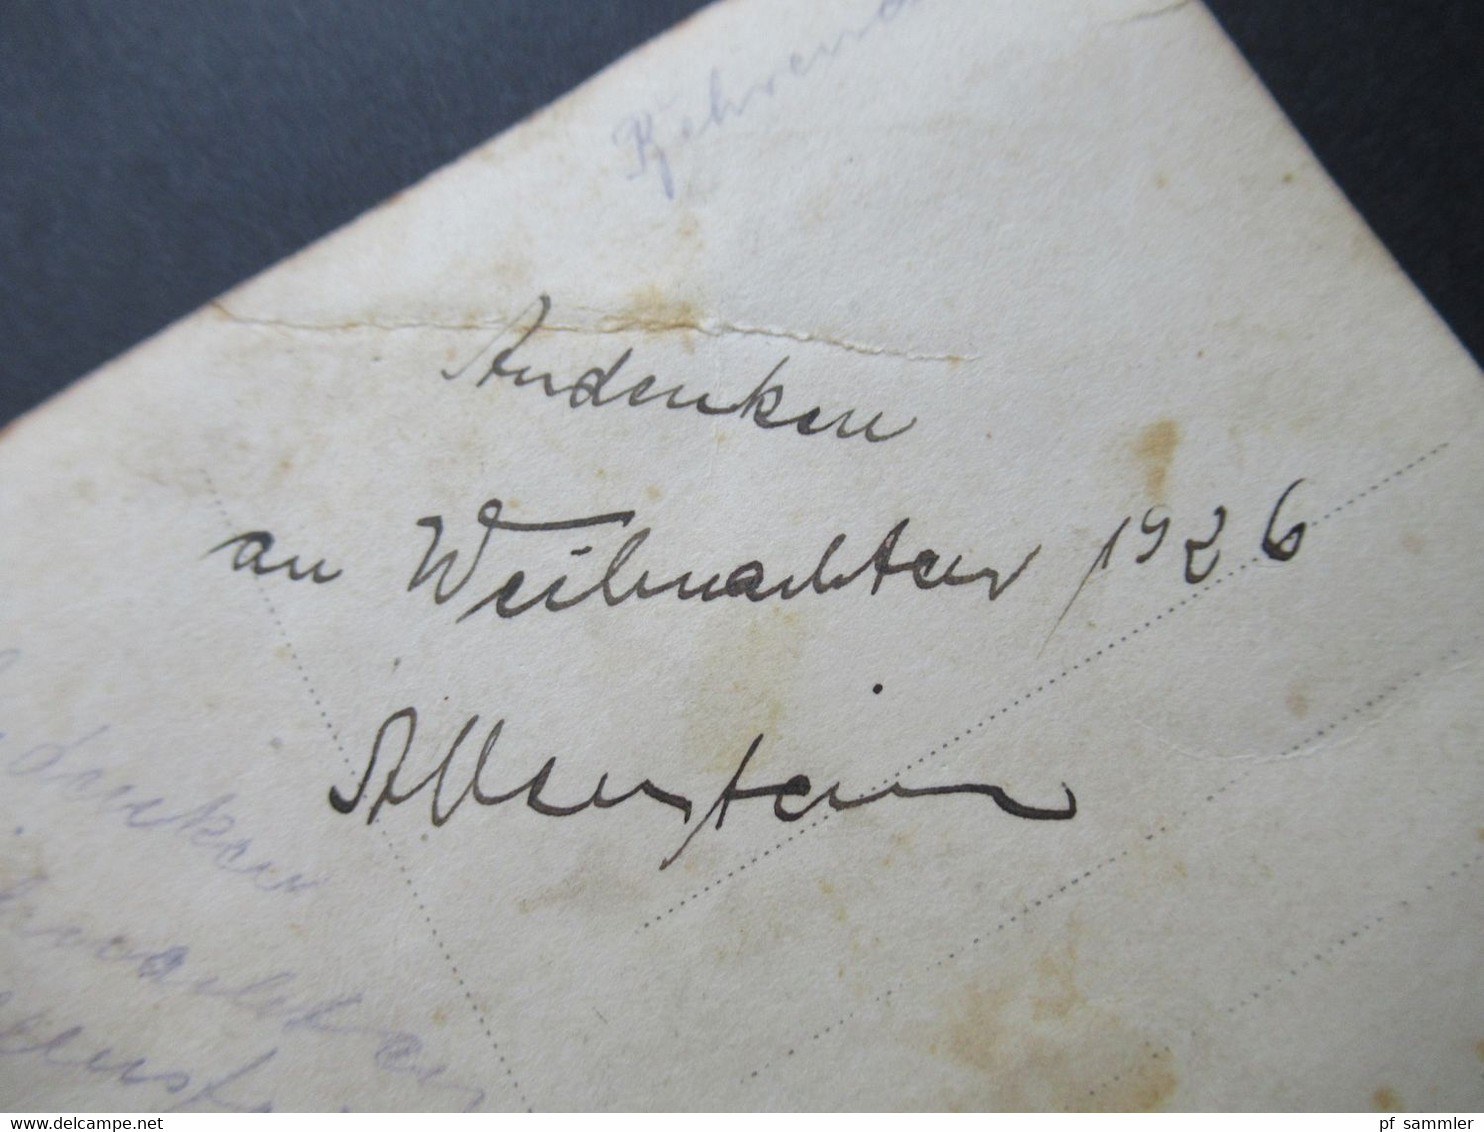 Behrend
Andenken
an Weihnachten 1926
Allenstein
denken
delcampe.net
pf_sammler